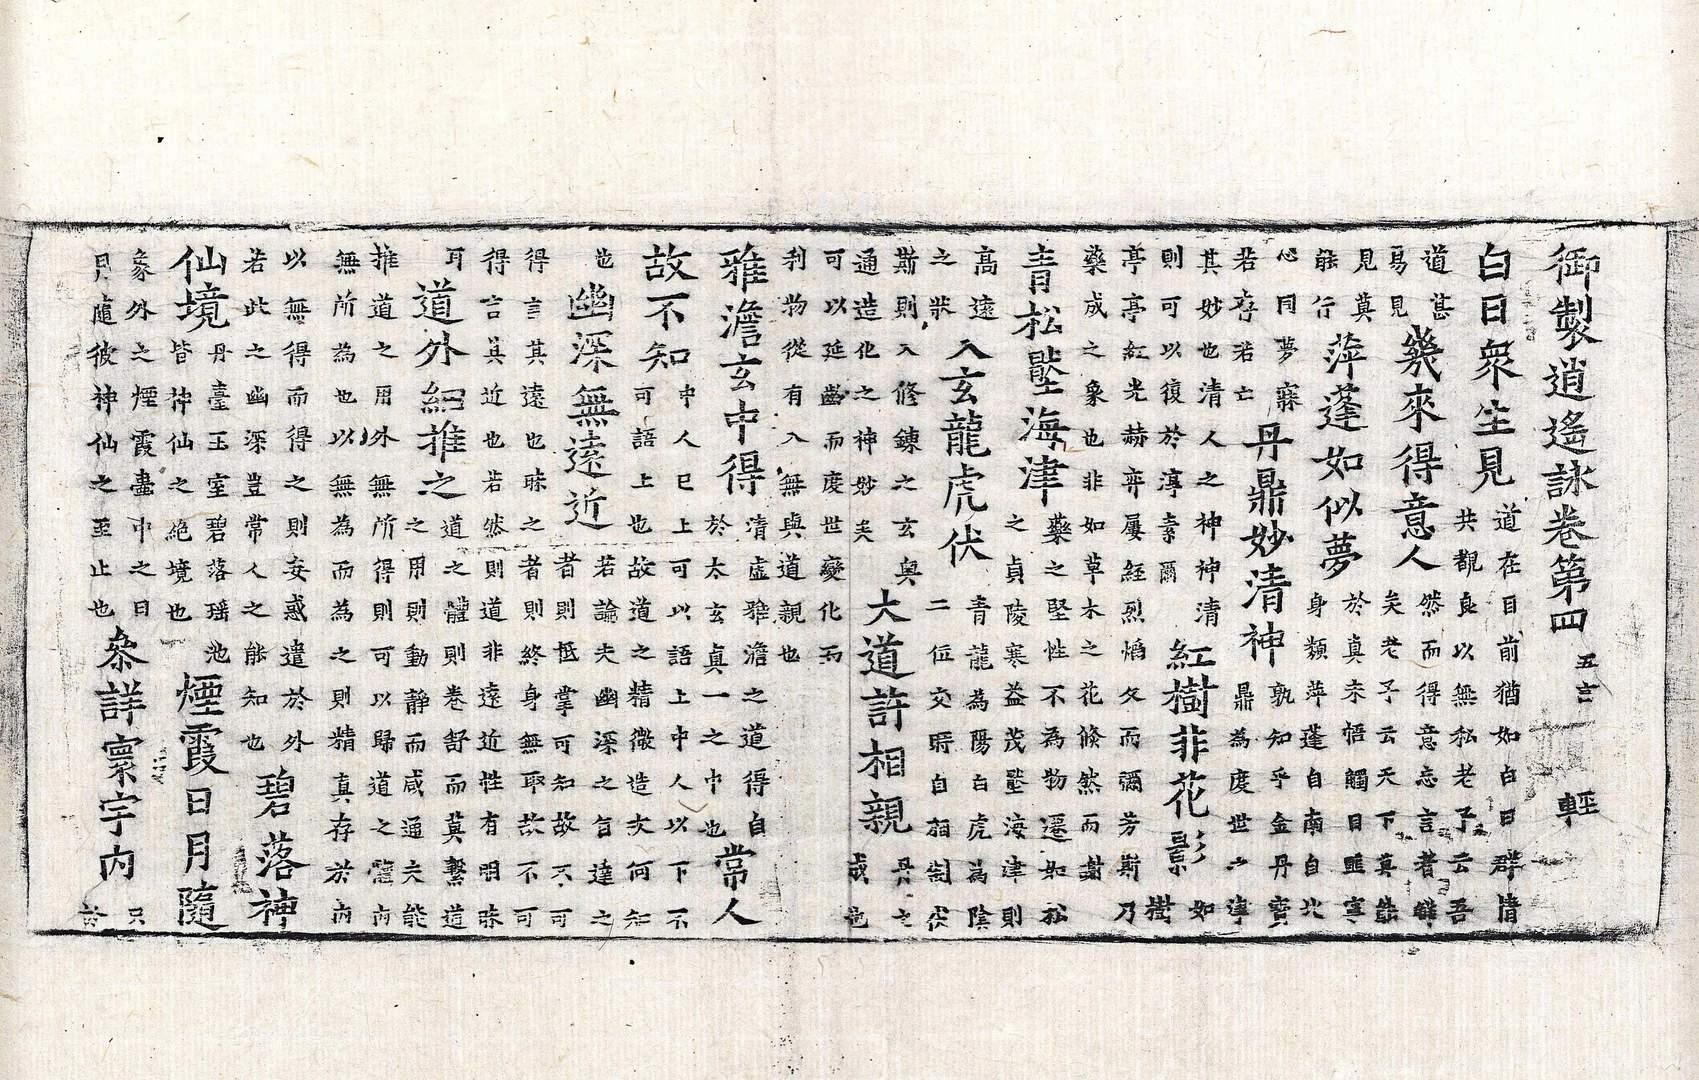 御製逍遙詠卷第四 五言 輕
白日衆生見 道在目前猶如白日群情
共覩良以無私老子云吾
道甚
易見 幾來得意人 然而得意忘言者雖
矣老子云天下莫能
見莫
能行 萍蓬如似夢 於真未悟觸目匪寧
身類萍蓬自南自北
心同夢寐
若存若亡 丹鼎妙清神 孰知乎金丹寶
鼎為度世之津
其妙也清人之神神清
則可以復於淳素爾 紅樹非花影 如
樹
亭亭紅光赫奕屢經烈焰久而彌芳斯乃
藥成之象也非如草木之花倏然而謝
青松壑海津 藥之堅性不為物遷如松
之貞陵寒益茂壑海津則
高遠
之狀 入玄龍虎伏 青龍為陽白虎為陰
二位交時自相制伏
斯則入修鍊之玄奧
通造化之神妙矣 大道許相親 丹之
成也
可以延齡而度世變化而
利物從有入無與道親也
雅澹玄中得 清虛雅澹之道得自
於太玄真一之中也 常人
故不知 中人已上可以語上中人以下不
可語上也故道之精微造次何知
也 幽深無遠近 若論夫幽深之旨達之
者則抵掌可知故不可
得言其遠也昧之者則終身無耶故不可
得言其近也若然則道非遠近性有明昧
耳 道外紹推之 道之體則卷舒而莫繫道
之用則動靜而咸通夫能
推道之用外無所得則可以歸道之體內
無所為也以無為而為之則精真存於內
以無得而得之則妄惑遣於外
若此之幽深豈常人之能知也 碧落神
仙境 丹臺玉室碧落瑶池
皆神仙之絕境也 煙霞日月隨
象外之煙霞壺中之日
月隨彼神仙之至止也 叅詳寰宇內 只
於